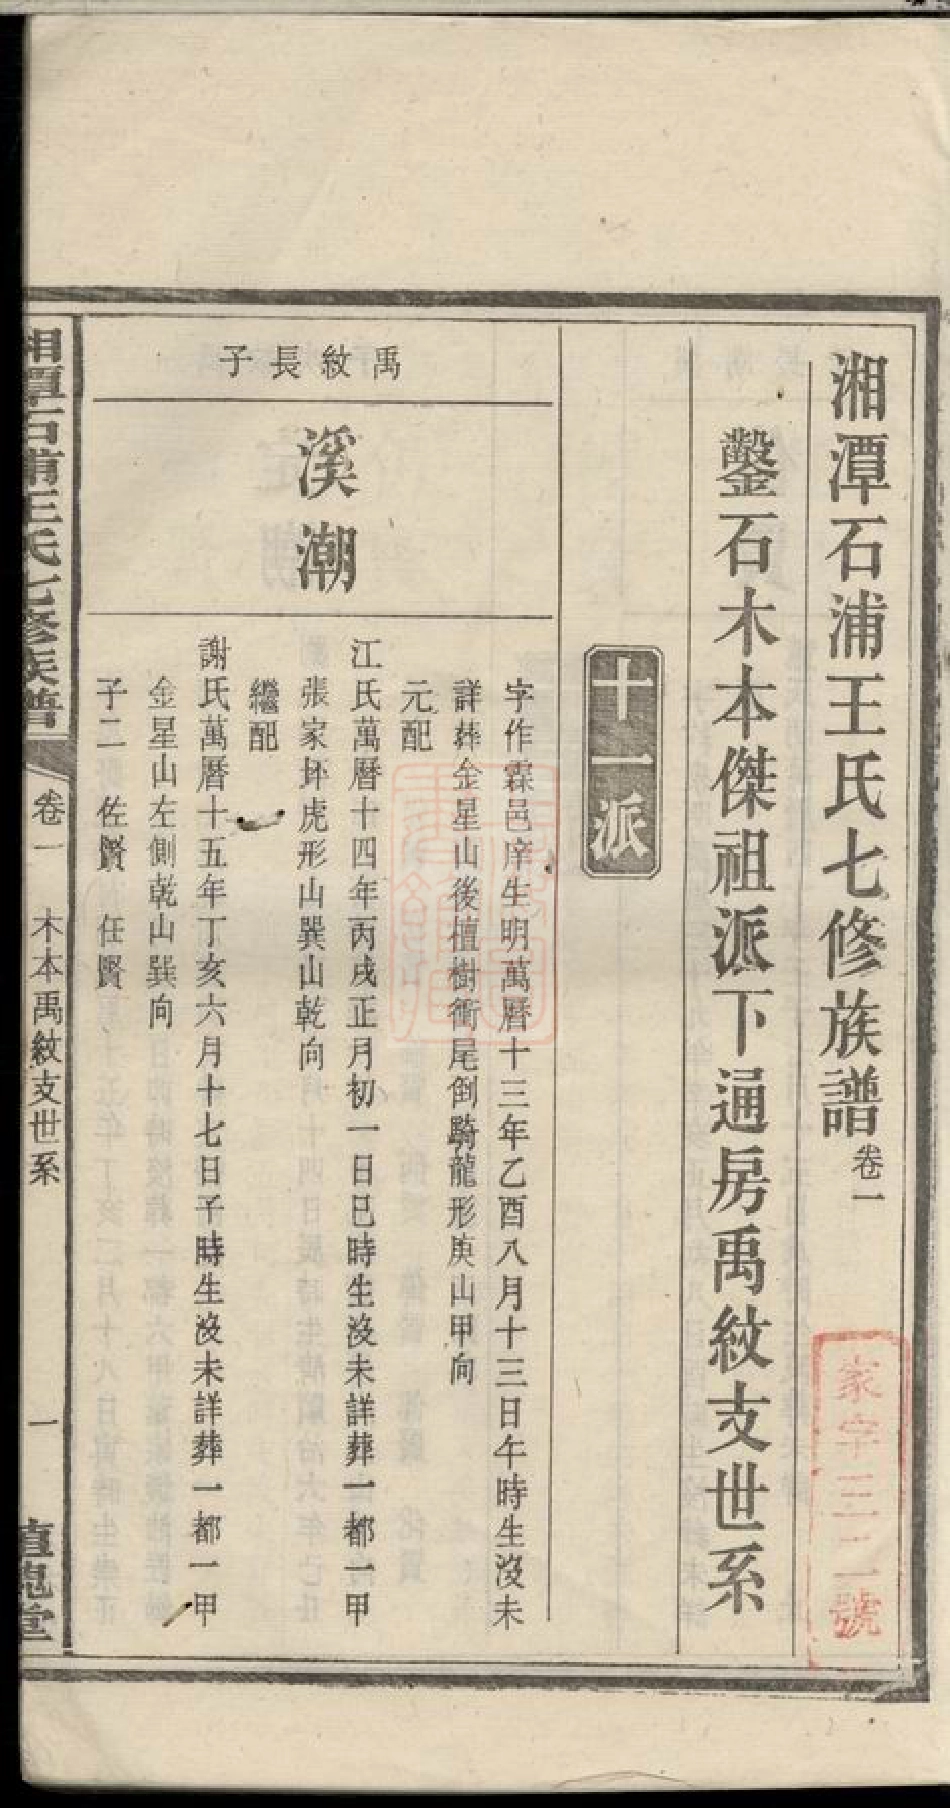 湘潭石浦王氏七修族譜卷一
鑿石木本傑祖派下通房禹紋支世系
十一派
禹紋長子
溪潮
字作霖邑庠生明萬曆十三年乙酉八月十三日午時生沒未
詳葬金星山後檀樹衝尾倒騎龍形庚山甲向
元配
江氏萬曆十四年丙戌正月初一日巳時生沒未詳葬一都一甲
張家坏虎形山巽山乾向
繼配
謝氏萬曆十五年丁亥六月十七日子時生沒未詳葬一都一甲
金星山左側乾山巽向
子二 佐賢 任賢
湘潭石浦王氏七修族譜
卷一 木本禹紋支世系
一
植槐堂
家字三二號